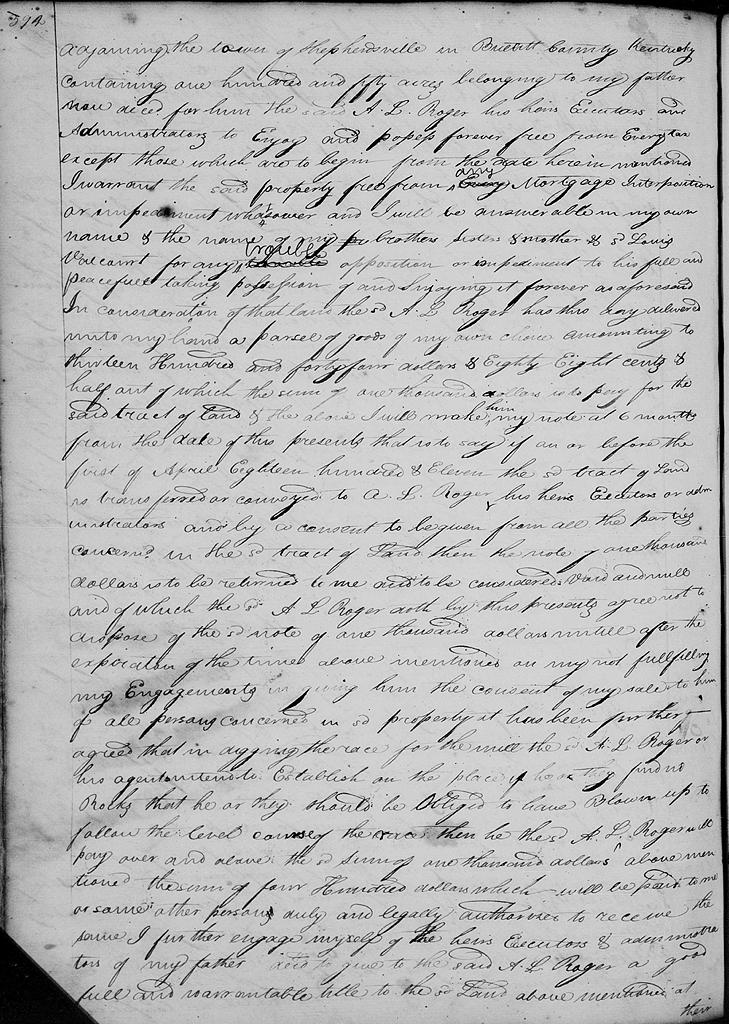 394
adjoining the town of Shepherdsville in Bullitt County Kentucky
containing one hundred and fifty acres belonging to my father
now decd. for him the said A. L. Roger his heirs Executors and
Administrators to Enjoy and possess forever free from Every tax
except those which are to begin from the date herein mentioned
I warrant the said property free from any Every Mortgage Interposition
or impediment whatsoever and I will be answerable in my own
name & the name of my brothers Sisters & mother & sd Louis
for any trouble opposition or impediment to his full and
peacefull taking possession of and Enjoying it forever as aforesaid
In consideration of that land the sd A. L Roger has this day delivered
unto my hand a parsel of goods of my own choice amounting to
thirteen Hundred and forty four dollars & Eighty Eight cents &
half out of which the sum of one thousand dollars is to pay for the
said tract of land & the above I will make him my note at 6 months
from the date of this presents that is to say if on or before the
first of April Eighteen hundred & Eleven the sd tract of Land
is transferred or conveyed to A. L. Roger his heirs Executors or adm
inistrators and by a consent to be given from all the parties
concernd. in the sd tract of Land then the note of one thousand
dollars is to be returned to me and to be considered Void and null
and of which the sd A L Roger doth by this presents agree not to
dispose of the sd note of one thousand dollars untill after the
expiration of the times above mentioned on my not fullfilling
my Engagements in giving him the consent of my sale to him
of all persons concerned in sd property it has been further
agreed that in digging the race for the mill the sd A. L. Roger or
his agents intend to Establish on the place if he or they find no
Rocks that he or they should be Obliged to have Blown up to
follow the level course of the race then he the sd A. L. Roger will
pay over and above the sd sum of one thousand dollars above men
tioned the sum of four Hundred dollars which will be paid to me
or some other persons duly and legally authorised to receive the
same I further engage myself & the heirs Executors & administra
tors of my father decd to give to the said A. L Roger a good
full and warrantable title to the sd Land above mentioned at
their